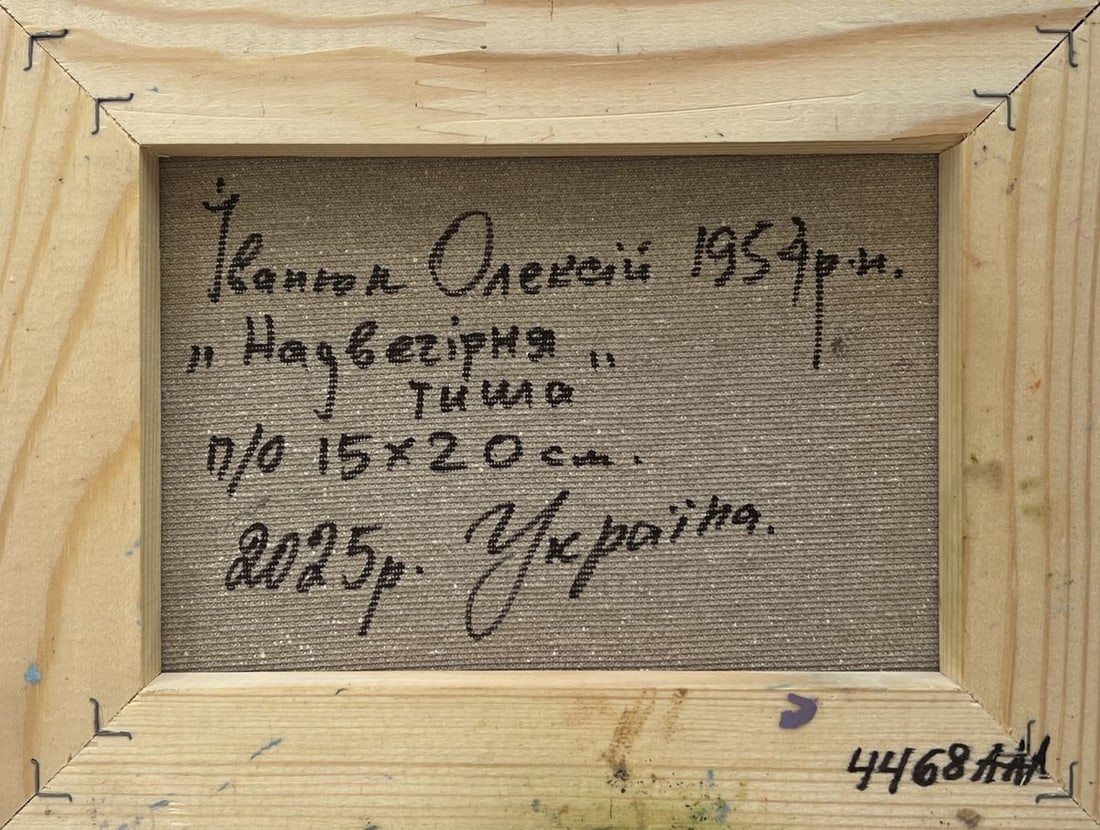 Іванюк Олексій 1957р.н.
„Надвечірня
тиша"
п/о 15х20см.
2025р. Україна.
4468ААЛ